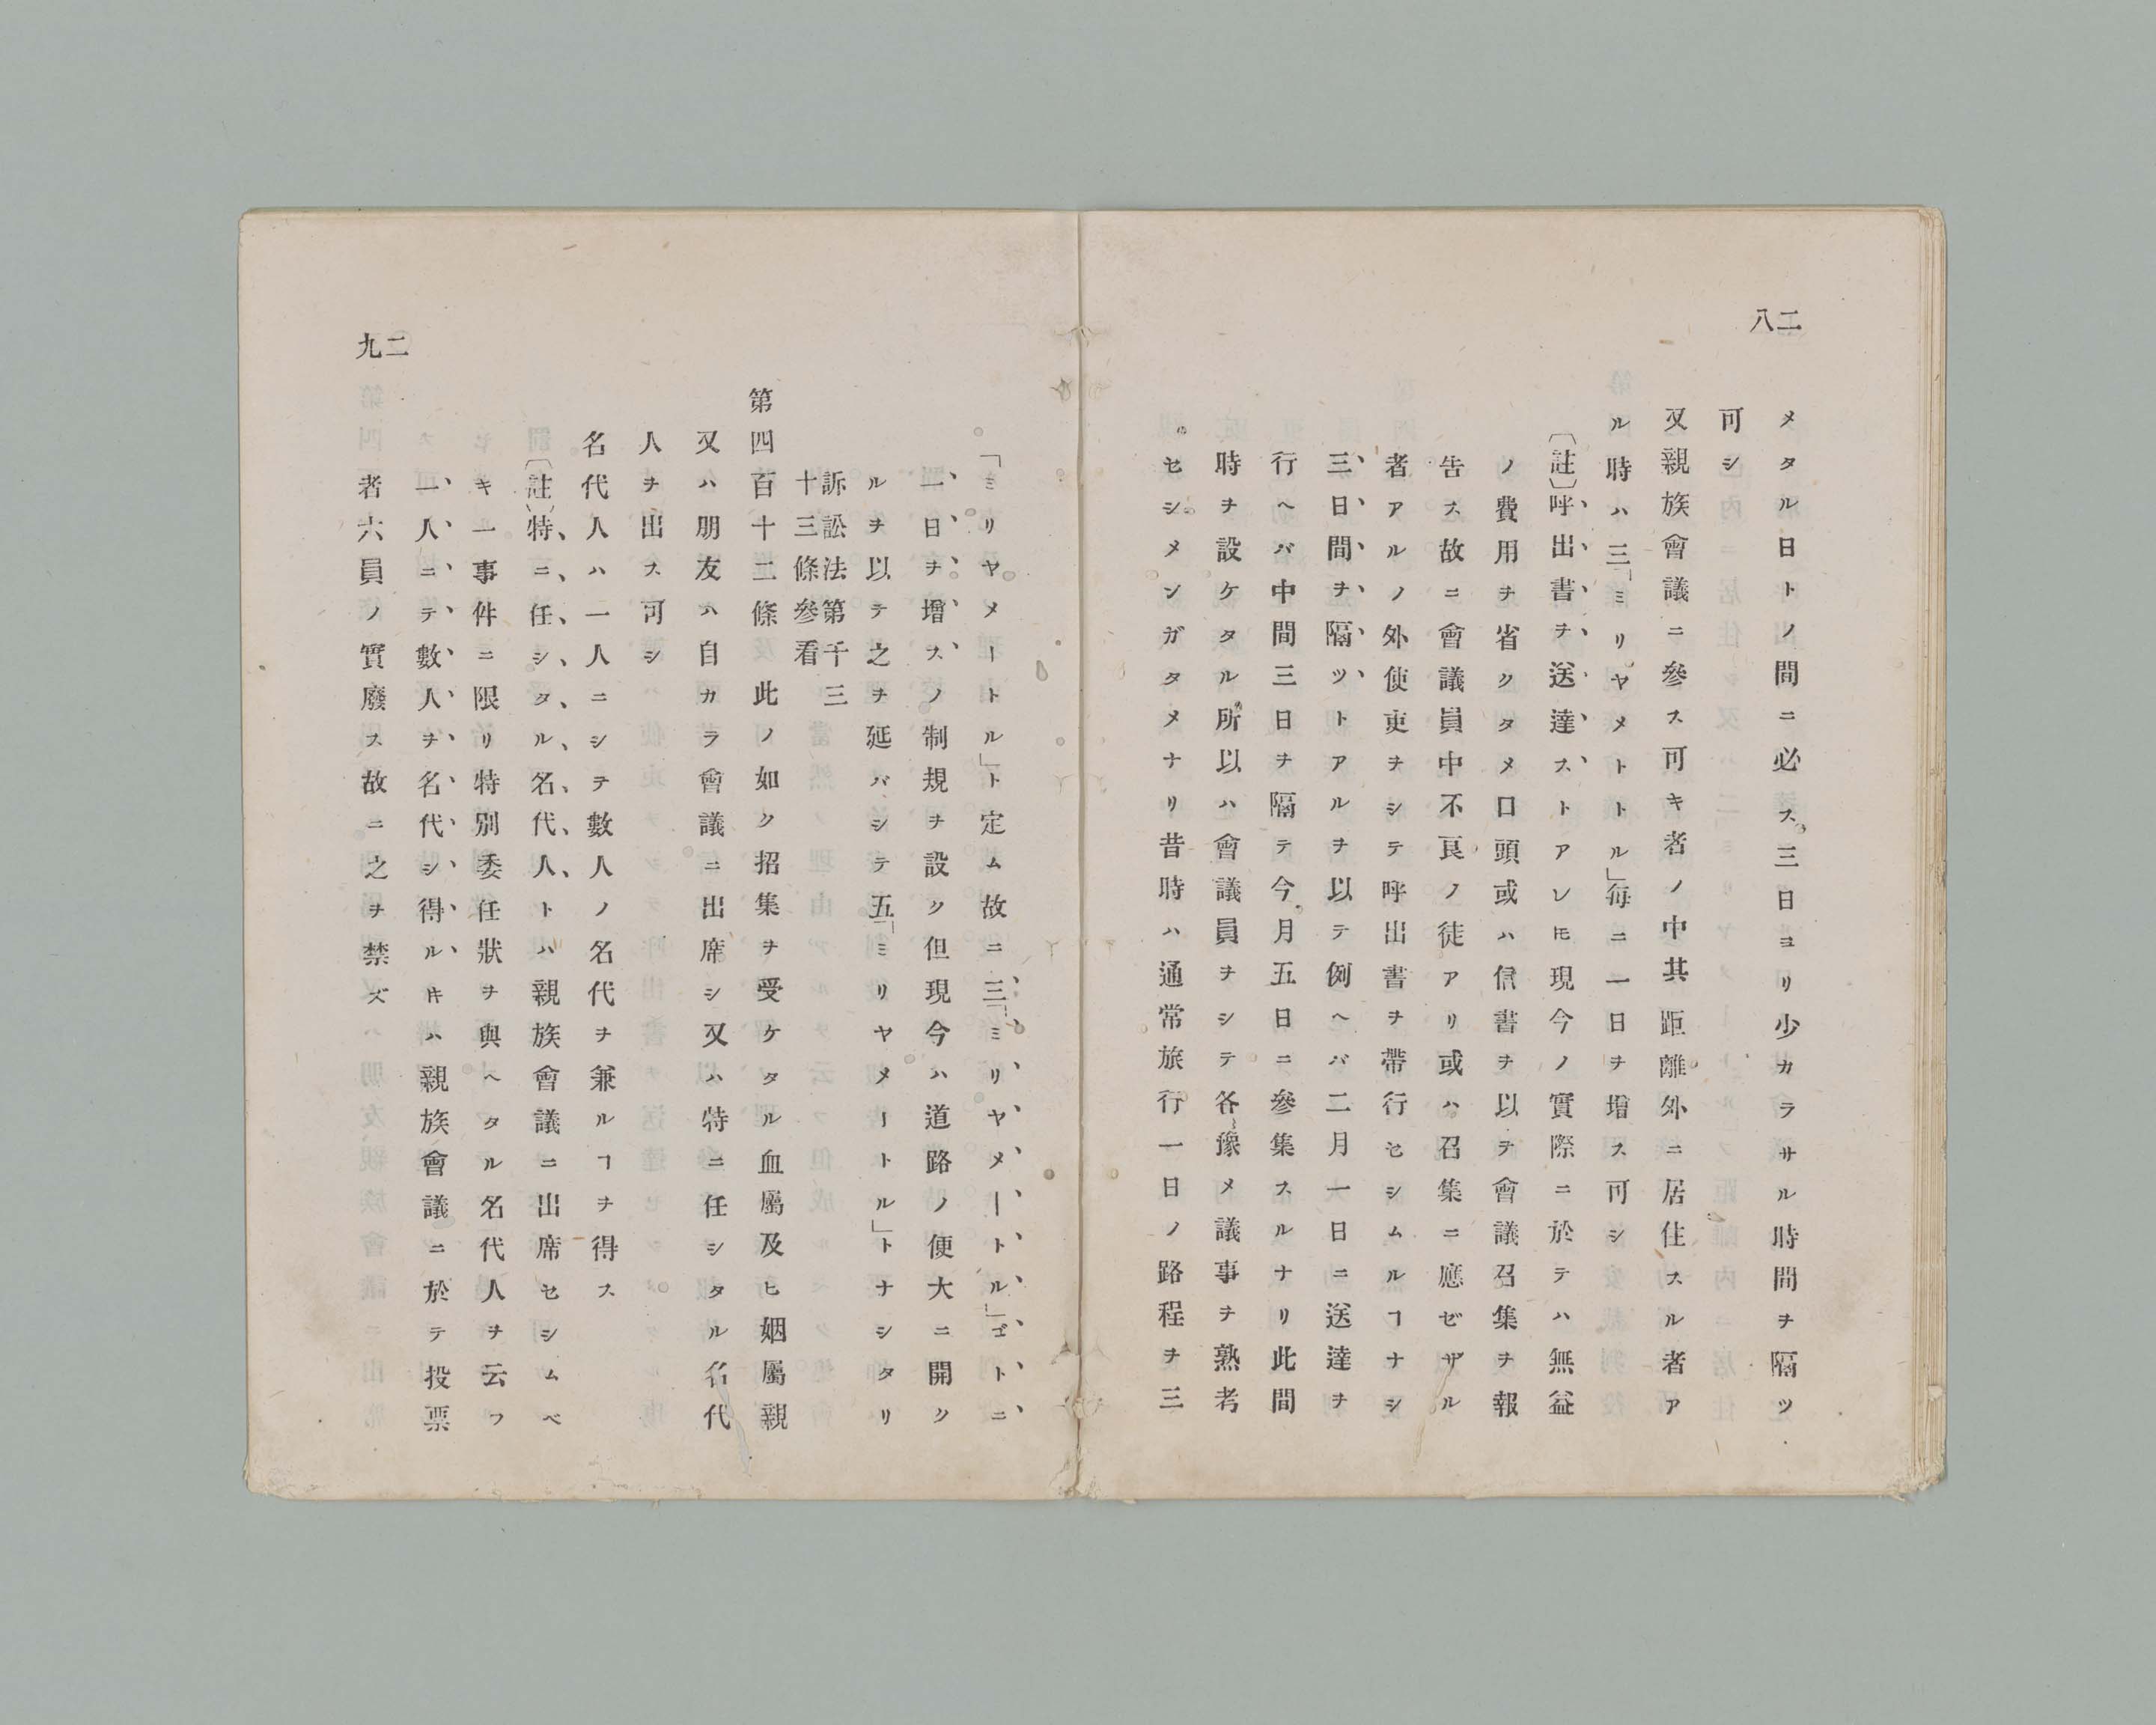 二八
メタル日トノ間ニ必ス三日ヨリ少カラサル時間ヲ隔ツ
可シ
又親族會議ニ參ス可キ者ノ中其距離外ニ居住スル者ア
ル時ハ三「ミリヤメトトル」每ニ一日ヲ增ス可シ
〔註〕呼出書ヲ送達ストアレ𪜈現今ノ實際ニ於テハ無益
ノ費用ヲ省クタメ口頭或ハ信書ヲ以テ會議召集ヲ報
告ス故ニ會議員中不良ノ徒アリ或ハ召集ニ應ゼザル
者アルノ外使吏ヲシテ呼出書ヲ帶行セシムルヿナシ
三日間ヲ隔ツトアルヲ以テ例ヘバ二月一日ニ送達ヲ
行ヘバ中間三日ヲ隔テ今月五日ニ參集スルナリ此間
時ヲ設ケタル所以ハ會議員ヲシテ各豫メ議事ヲ熟考
セシメンガタメナリ昔時ハ通常旅行一日ノ路程ヲ三
二九
「ミリヤメートル」ト定ム故ニ三「ミリヤメートル」ゴトニ
一日ヲ增スノ制規ヲ設ク但現今ハ道路ノ便大ニ開ク
ルヲ以テ之ヲ延バシテ五「ミリヤメートル」トナシタリ
訴訟法第千三
十三條參看
第四百十二條 此ノ如ク招集ヲ受ケタル血屬及ヒ姻屬親
又ハ朋友ハ自カラ會議ニ出席シ又ハ特ニ任シタル名代
人ヲ出ス可シ
名代人ハ一人ニシテ數人ノ名代ヲ兼ルヿヲ得ス
〔註〕特ニ任シタル名代人トハ親族會議ニ出席セシムベ
キ一事件ニ限リ特別委任狀ヲ與ヘタル名代人ヲ云フ
一人ニテ數人ヲ名代シ得ル𪜈ハ親族會議ニ於テ投票
者六員ノ實廢ス故ニ之ヲ禁ズ